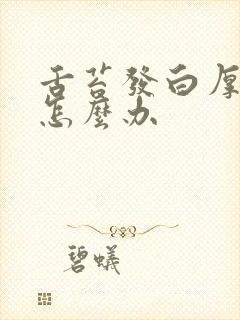 舌苔發白厚
怎麼办
碧蟻